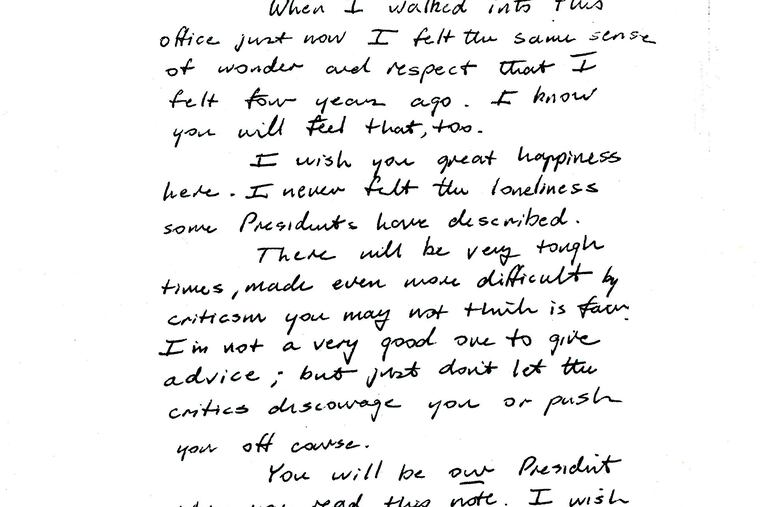 When I walked into this
office just now I felt the same sense
of wonder and respect that I
felt four years ago. I know
you will feel that, too.
I wish you great happiness
here. I never felt the loneliness
some Presidents have described.
There will be very tough
times, made even more difficult by
criticism you may not think is fair.
I'm not a very good one to give
advice; but just don't let the
critics discourage you or push
you off course.
You will be our President
when you read this note. I wish